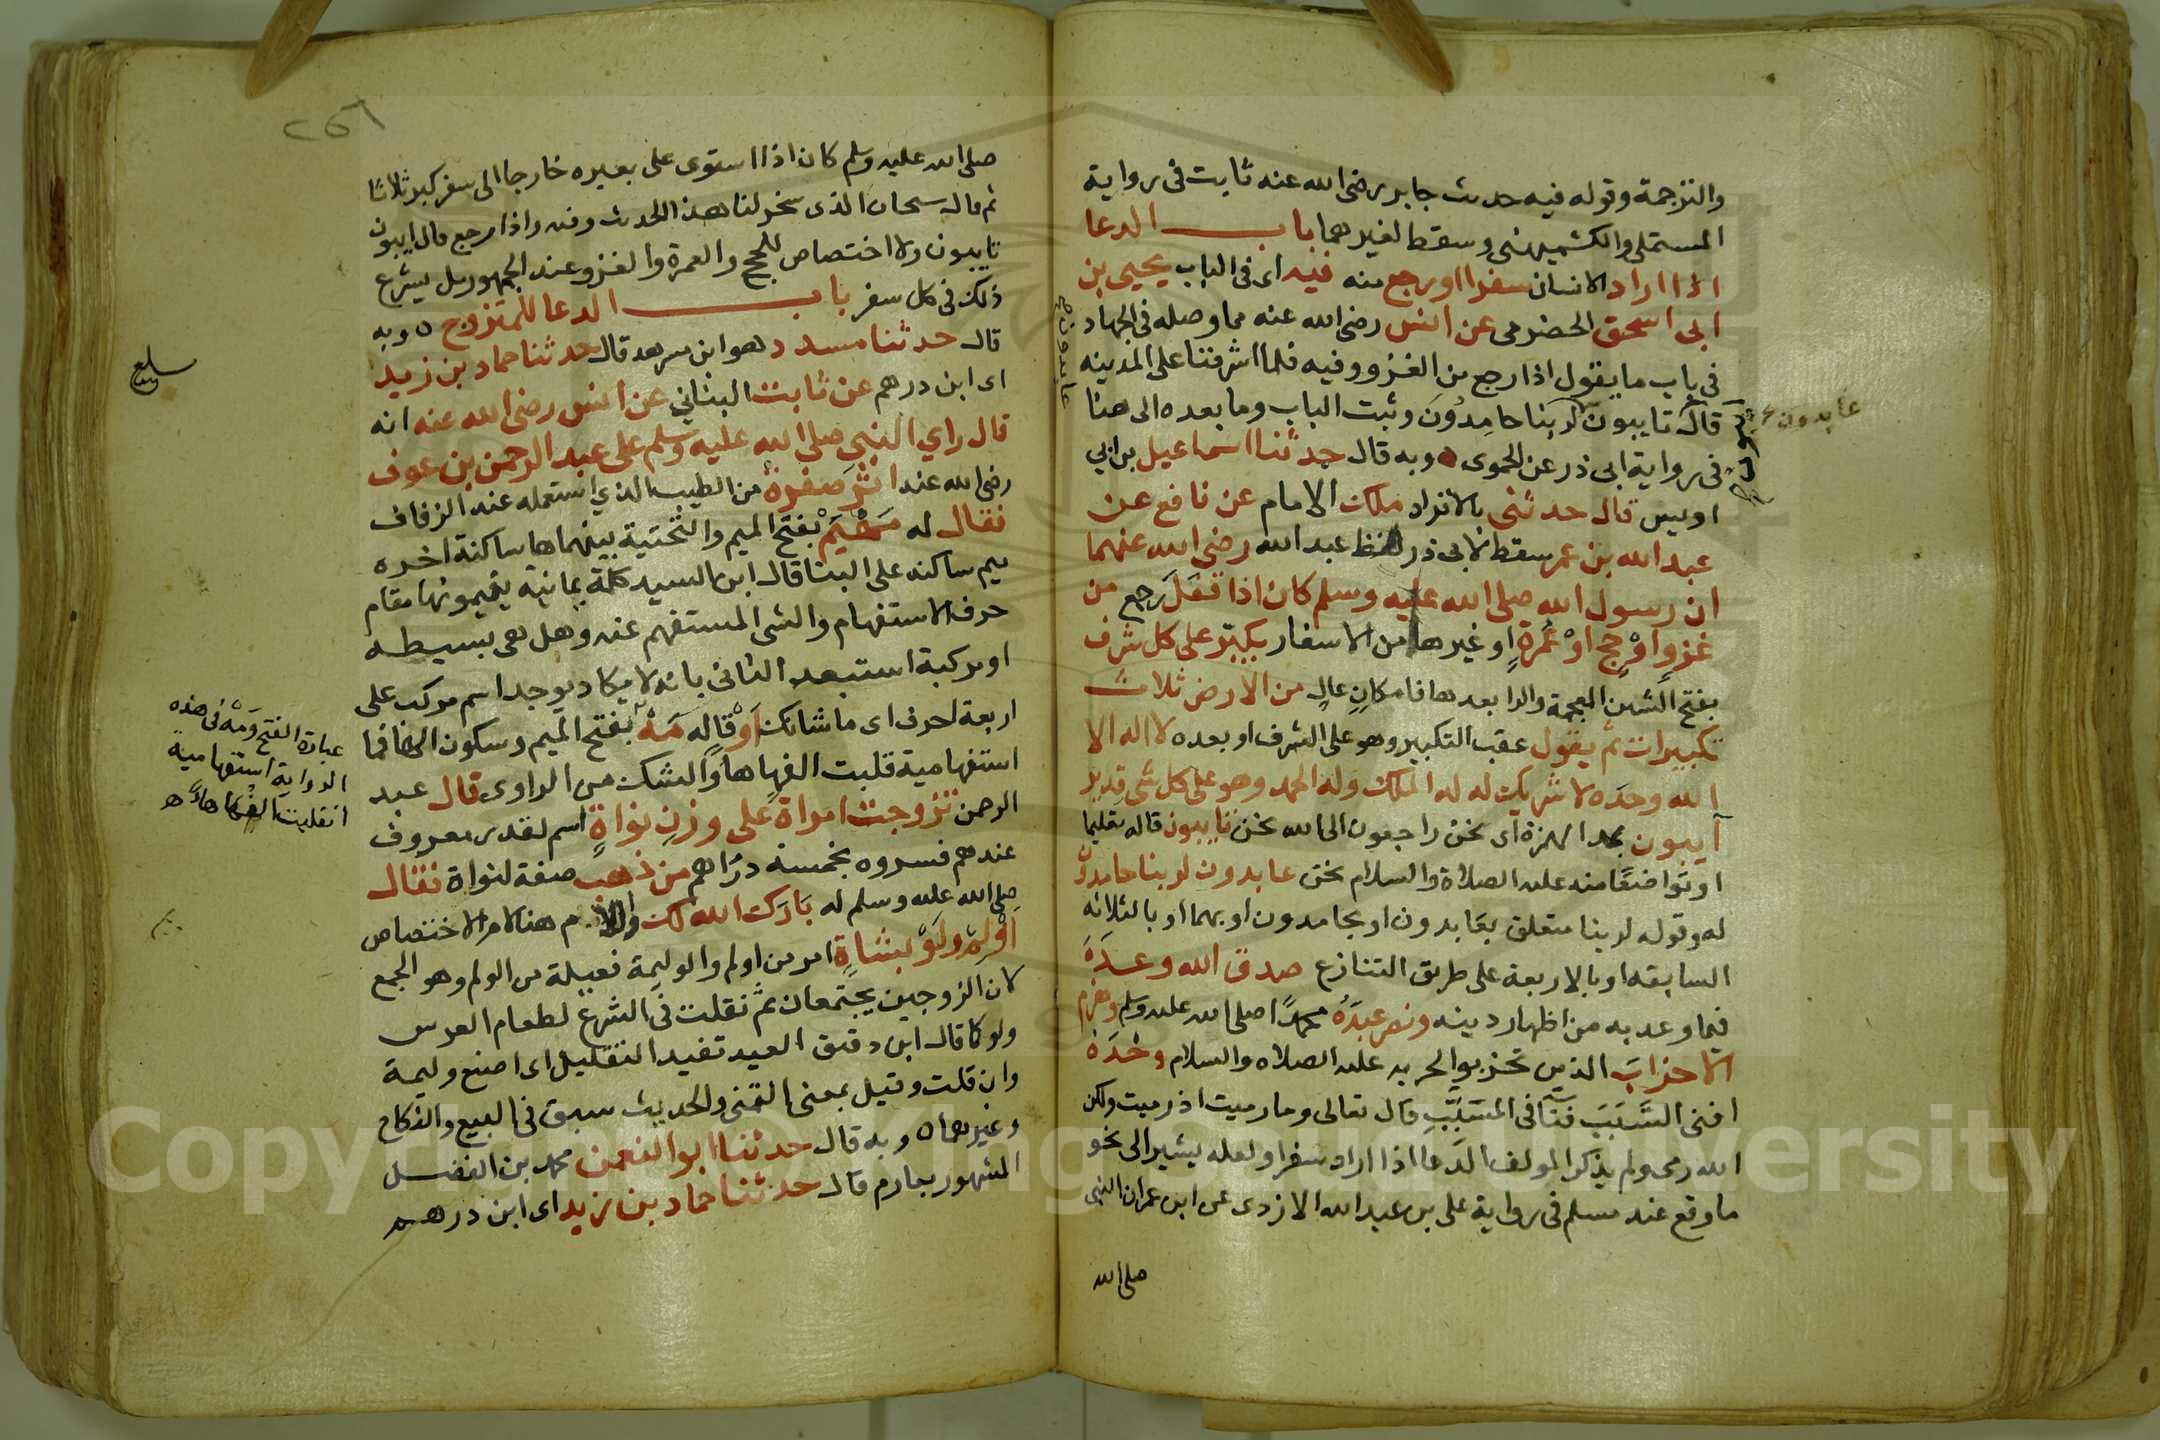 والترجمة وقوله فيه حديث جابر رضى الله عنه ثابت فى رواية
المستملى والكشميهنى وسقط لغيرهما باب الدعا
اذا اراد الانسان سفرا او رجع منه فيه اى فى الباب يحيى بن
ابى اسحق الحضرمى عن انس رضى الله عنه مما وصله فى الجهاد
فى باب ما يقول اذا رجع من الغزو وفيه فلما اشرفنا على المدينه
قال تايبون لربنا حامدون وثبت الباب وما بعده الى هنا
فى رواية ابى ذر عن الحموى وبه قال حدثنا اسماعيل بن ابي
اويس قال حدثنى بالافراد ملك الامام عن نافع عن
عبد الله بن عمر سقط لابى ذر لفظ عبد الله رضى الله عنهما
ان رسول الله صلى الله عليه وسلم كان اذا قفل رجع من
غزو او حج او عمرة او غيرها من الاسفار يكبر على كل شرف
بفتح الشين المعجمة والرا بعدها فا مكان عال من الارض ثلاث
تكبيرات ثم يقول عقب التكبير وهو على الشرف او بعده لا اله الا
الله وحده لا شريك له له الملك وله الحمد وهو على كل شى قدير
آيبون بمد الهمزة اى نحن راجعون الى الله نحن تايبون قاله تعليما
او تواضعا منه عليه الصلاة والسلام نحن عابدون لربنا حامدون
له وقوله لربنا متعلق بعابدون او بحامدون او بهما او بالثلاثه
السابقه او بالاربعة على طريق التنازع صدق الله وعده
فيما وعد به من اظهار دينه ونصر عبده محمدا صلى الله عليه وسلم وهزم
الاحزاب الذين تحزبوا لحربه عليه الصلاه والسلام وحده
افنى السبب فنآ فى المسبب قال تعالى وما رميت اذ رميت ولكن
الله رمى ولم يذكر المولف الدعا اذا اراد سفرا ولعله يشير الى نحو
ما وقع عند مسلم فى رواية على بن عبد الله الازدى عن ابن عمر ان النبى
صلى الله
عابدون
عابدون
صلى الله عليه وسلم كان اذا استوى على بعيره خارجا الى سفر كبر ثلاثا
ثم قال سبحان الذى سخر لنا هذا الحديث وفيه واذا رجع قال ايبون
تايبون ولا اختصاص للحج والعمرة والغزو عند الجمهور بل يشرع
ذلك فى كل سفر باب الدعا للمتزوج وبه
قال حدثنا مسدد هو ابن مسرهد قال حدثنا حماد بن زيد
اى ابن درهم عن ثابت البناني عن انس رضى الله عنه انه
قال راي النبى صلى الله عليه وسلم على عبد الرحمن بن عوف
رضى الله عنه اثر صفرة من الطيب الذي استعمله عند الزفاف
فقال له مهيم بفتح الميم والتحتية بينهما ها ساكنة اخره
ميم ساكنه على البنا قال ابن السيد كلمة يمانية يقيمونها مقام
حرف الاستفهام والشى المستفهم عنه وهل هى بسيطه
او مركبة استبعد الثانى بانه لا يكاد يوجد اسم مركب على
اربعة احرف اى ما شانك او قال مه بفتح الميم وسكون الها فما
استفهامية قلبت الفها ها والشك من الراوى قال عبد
الرحمن تزوجت امراة على وزن نواة اسم لقدر معروف
عندهم فسروه بخمسة دراهم من ذهب صفة لنواة فقال
صلى الله عليه وسلم له بارك الله لك واللام هنا لام الاختصاص
اولم ولو بشاة امر من اولم والوليمة فعيلة من الولم وهو الجمع
لان الزوجين يجتمعان ثم نقلت فى الشرع لطعام العرس
ولو كما قال ابن دقيق العيد تفيد التقليل اى اصنع وليمة
وان قلت وقيل بمعنى التمنى والحديث سبق فى البيع والنكاح
وغيرهما وبه قال حدثنا ابو النعمن محمد بن الفضل
المشهور بعارم قال حدثنا حماد بن زيد اى ابن درهم
عبارة الفتح ومه فى هذه
الرواية استفهامية
انقلبت الفها هاء
Copyright © King Saud University